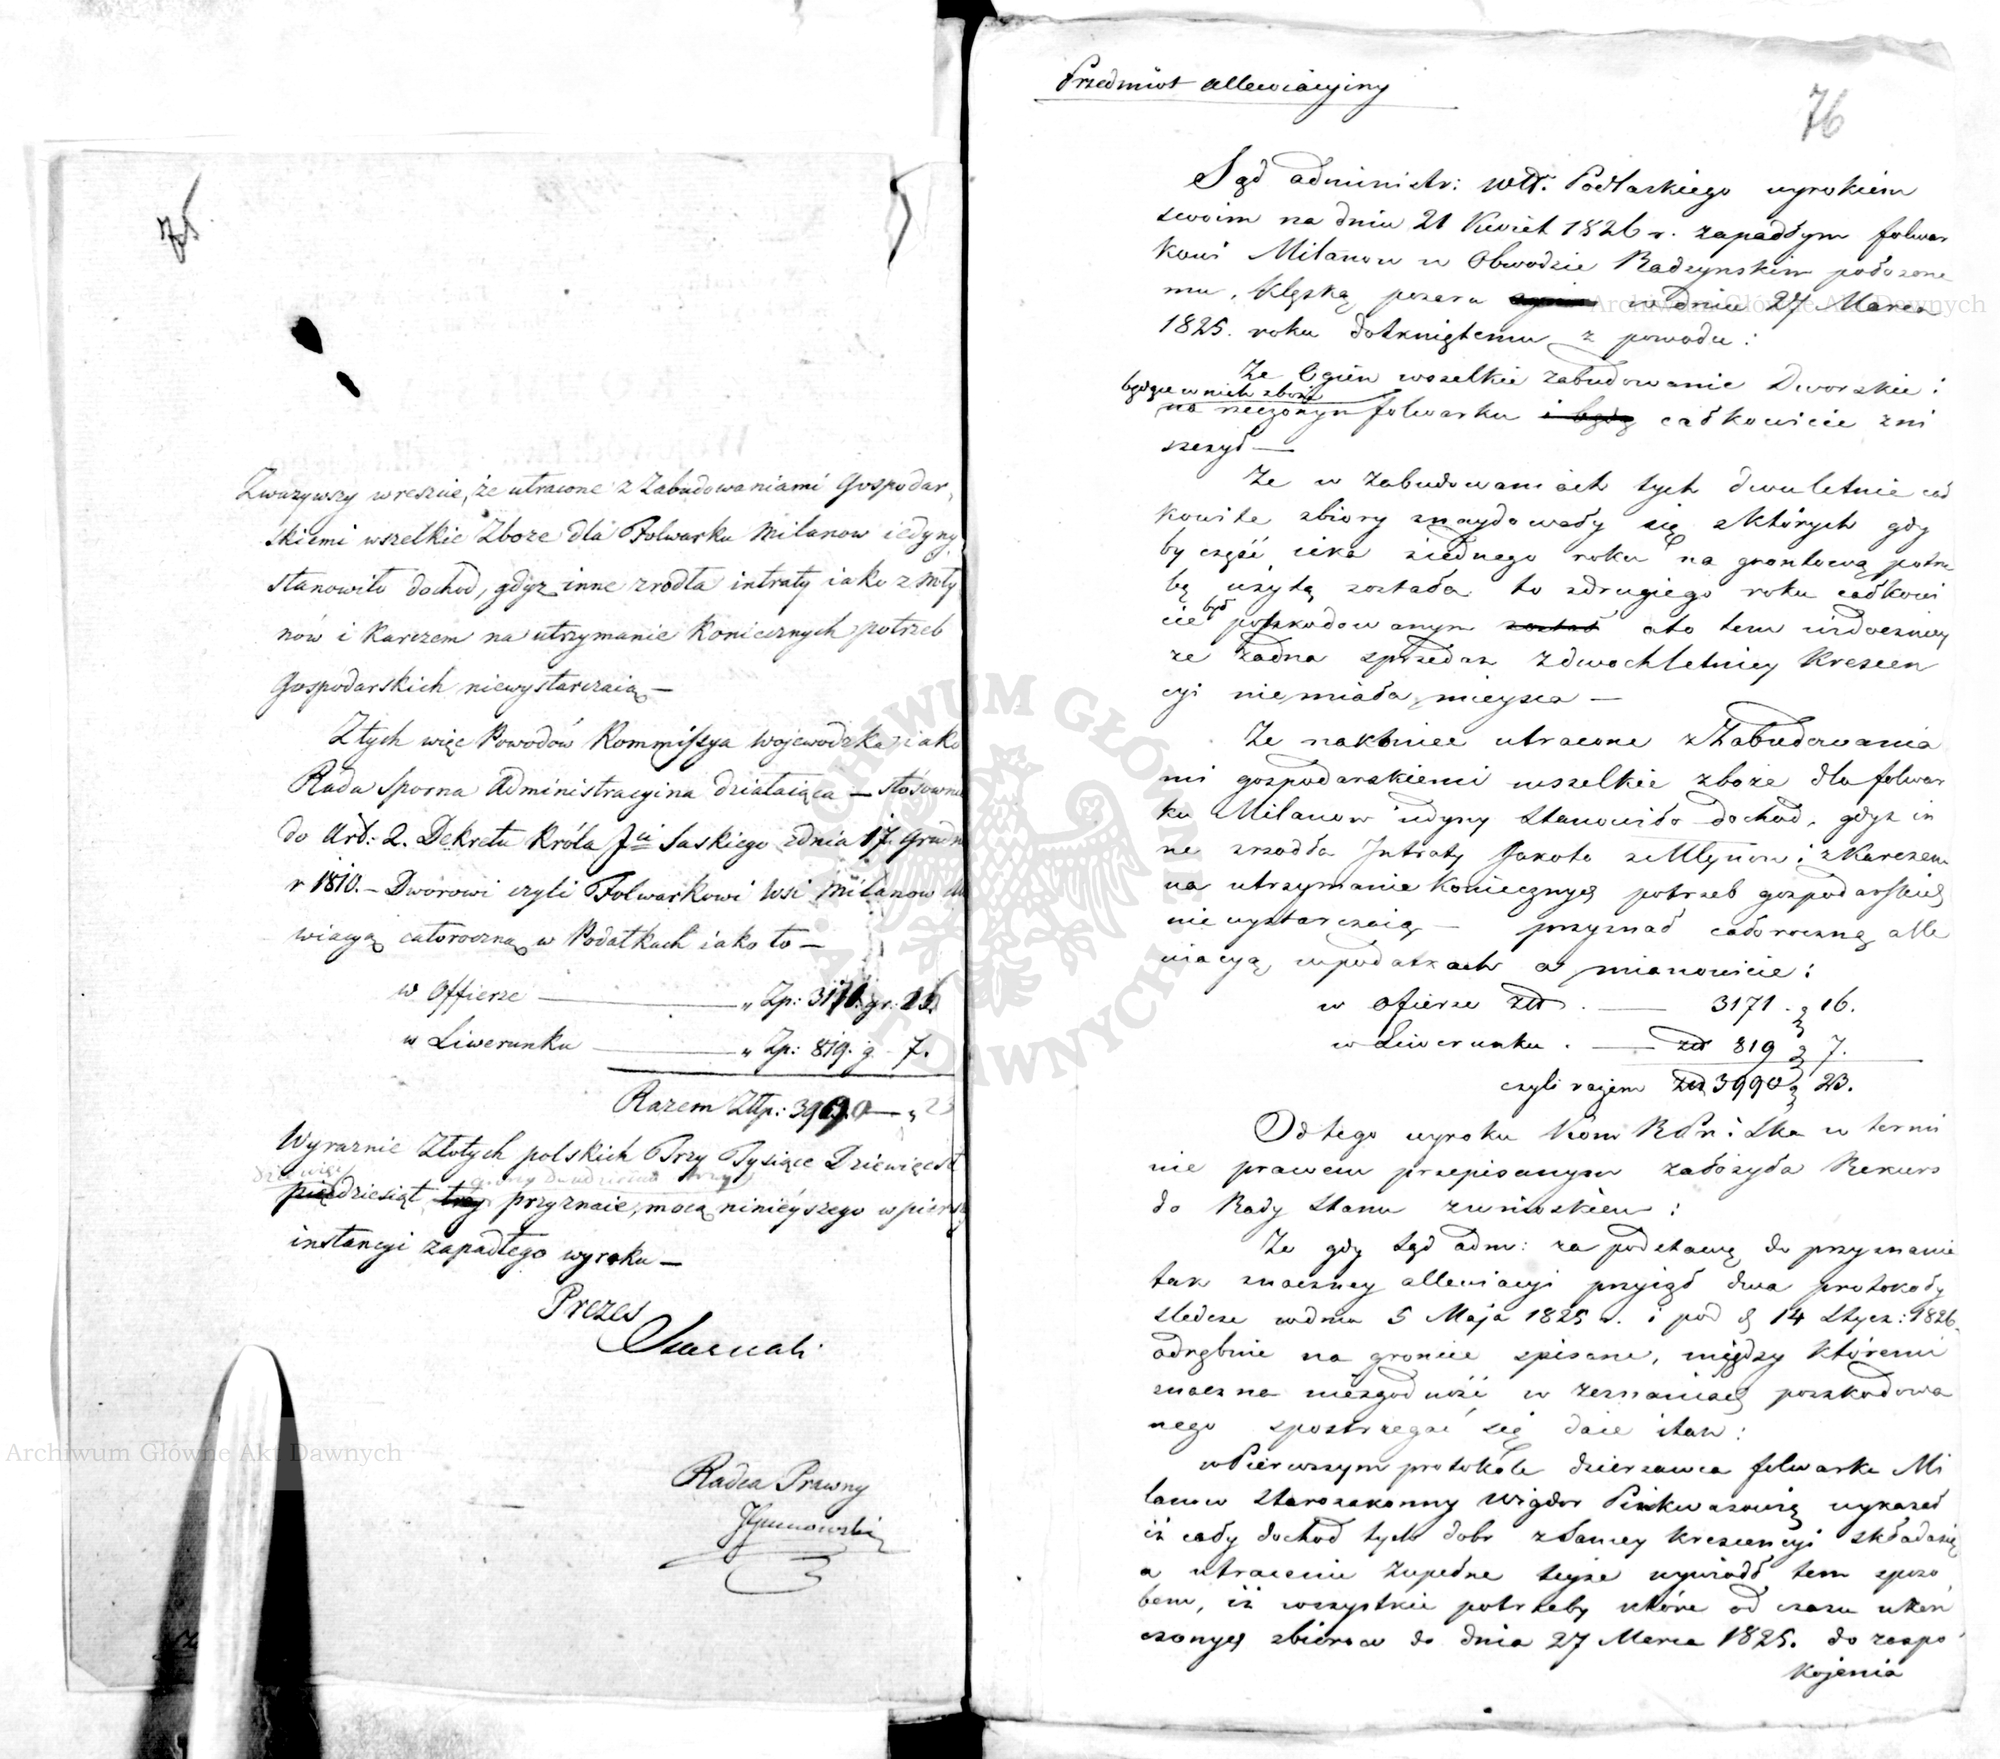 75
Zwazywszy wreszcie, że utracone z Zabudowaniami Gospodar-
skiemi wszelkie Zboże dla Folwarku Milanow iedyny
stanowiło dochod, gdyż inne zrodła intraty iako z Mły
nów i Karczem na utrzymanie Koniecznych potrzeb
Gospodarskich niewystarczaią —
Z tych więc Powodów Kommissya Wojewodzka iako
Rada Sporna Administracyina działaiąca — stosownie
do Art: 2. Dekretu Króla Jmci Saskiego z dnia 17. Grudn
r 1810. — Dworowi czyli Folwarkowi Wsi Milanow
wiacyą całoroczną w Podatkach iako to —
w Offierze — „ Zp: 3171. gr: 16.
w Liwerunku — „ Zp: 819. g - 7.
Razem Złtp: 3990 — „ 23
Wyraznie Złotych polskich Trzy Tysiące Dziewięcset
dziewięć groszy dwadzieścia trzy
pięćdziesiąt trzy przyznaie, mocą ninieyszego w pierwszy
instancyi zapadłego wyroku —
Prezes
Radca Prawny
Przedmiot allewiacyiny
76
Sąd administr: Wtt. Podlaskiego wyrokiem
swoim na dniu 21 Kwiet 1826 r. zapadłym folwar
kowi Milanow w Obwodzie Radzynskim położone
mu, Klęską pozaru w dniu 27 Marca
1825. roku dotkniętemu z powodu:
Ze Ogień wszelkie zabudowanie Dworskie i
będące w nich zboże
na rzeczonym folwarku i będą całkowicie zni
szczył —
Ze w zabudowaniach tych dwuletnie cał
kowite zbiory znaydowały się z których gdy
by część iaka z iednego roku na grontową potrze
bę użytą została to z drugiego roku całkowi
cie był poszkodowanym został a to tem widoczniey
ze żadna sprzedaz z dwochletniey Krescen
cyi nie miała mieysca —
Ze nakoniec utracone z Zabudowania
mi gospodarskiemi wszelkie zboże dla folwar
ku Milanow iedyny Stanowiło dochod, gdyż in
ne zrzodła Intraty Jakoto z Młynow i z Karczem
na utrzymanie Koniecznych potrzeb gospodarskich
nie wystarczaią — przyznał całoroczną alle
wiacyą w podatkach a mianowicie:
w Ofierze złł . — 3171 . g 16.
w Liwerunku . — złł 819 g 7.
czyli razem złł 3990 g 23.
Od tego wyroku Kom RPn i Ska w termi
nie prawem przepisanym założyła Rekurs
do Rady Stanu z wnioskiem:
Ze gdy Sąd adm: za podstawę do przyznanie
tak znaczney allewiacyi przyiął dwa protokoły
sledcze w dniu 5 Maja 1825 r. i pod d 14 Stycz: 1826
odrębnie na groncie spisane, między któremi
znaczna niezgodność w zeznaniach poszkodowa
nego spostrzegać się daie i tak:
w Pierwszym protokóle dzierzawca folwarku Mi
lanow Starozakonny Wigdor Pinkwasowicz wykazał
iż cały dochod tych dobr z samey krescencyi składa się
a utracenie zupełne teyże wywiódł tem sposo
bem, iż wszystkie potrzeby które od czasu ukoń
czonych zbiorow do dnia 27 Marca 1825. do zaspo
kojenia
Archiwum Główne Akt Dawnych
Archiwum Główne Akt Dawnych
ARCHIWUM GŁÓWNE AKT DAWNYCH